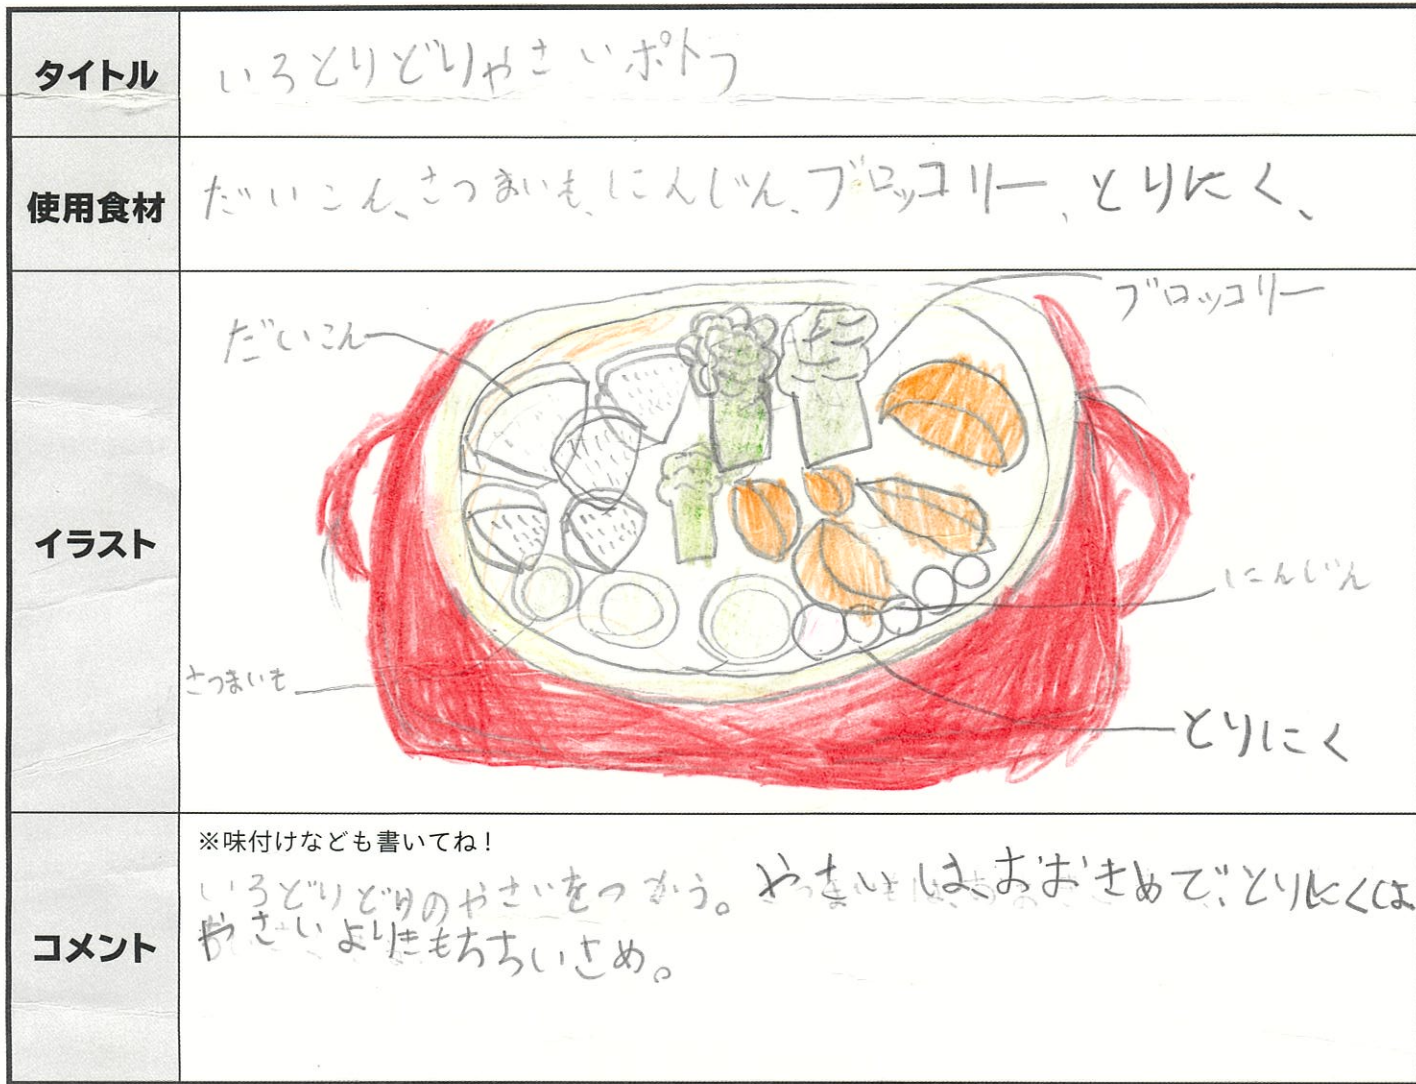 タイトル
いろとりどりやさいポトフ
使用食材
だいこん、さつまいも、にんじん、ブロッコリー、とりにく、
イラスト
ブロッコリー
だいこん
にんじん
さつまいも
とりにく
コメント
※味付けなども書いてね!
いろどりどりのやさいをつかう。やさいはおおきめで、とりにくは
やさいよりきもちちいさめ。